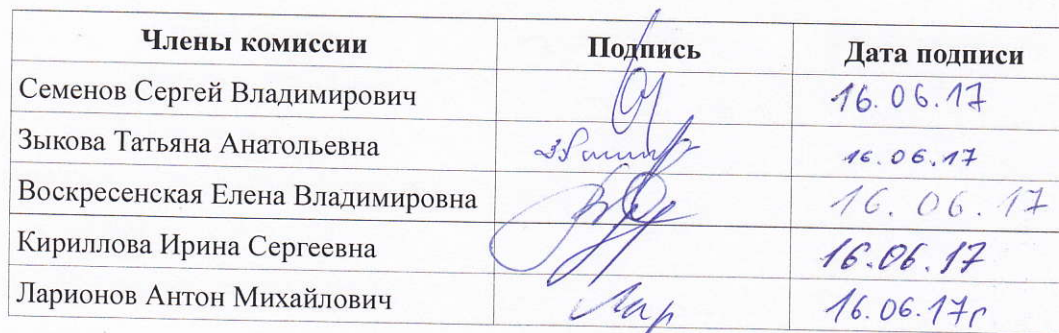 Члены комиссии Подпись Дата подписи
Семенов Сергей Владимирович 16.06.17
Зыкова Татьяна Анатольевна 16.06.17
Воскресенская Елена Владимировна 16.06.17
Кириллова Ирина Сергеевна 16.06.17
Ларионов Антон Михайлович Лар 16.06.17г